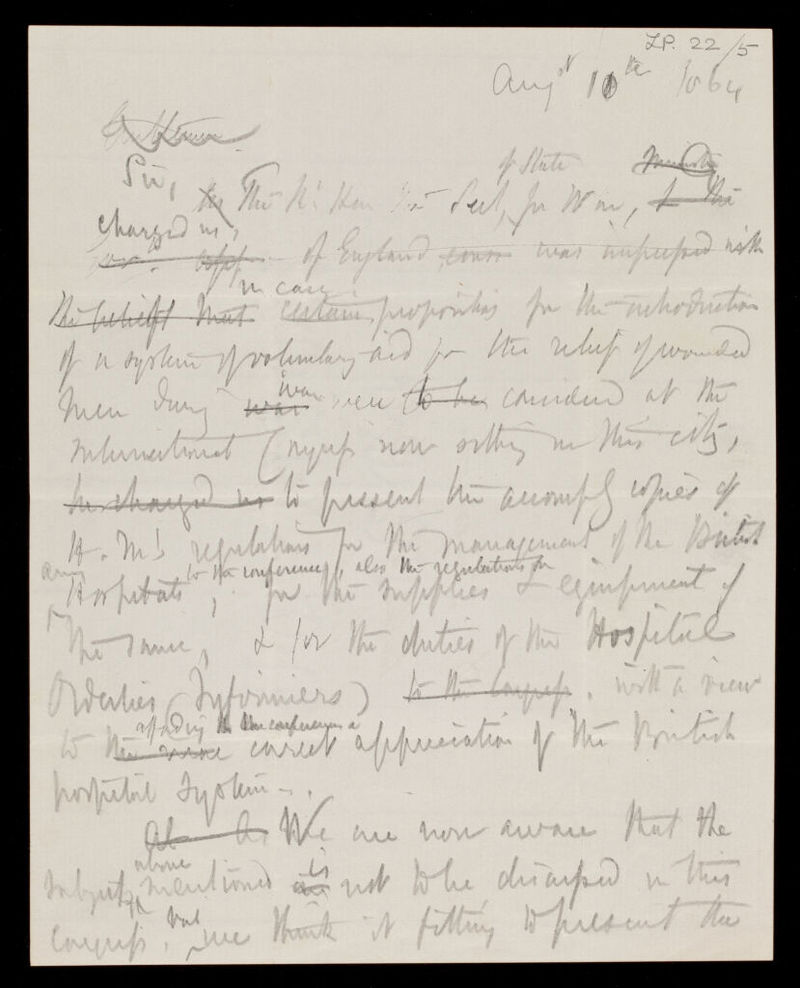 L.P. 22/5
Augst 10th 1864
Gentlemen
Sir,
of State
The Rt Hon the Sect, for War, to the
charged us,
of England was impressed with
in case
the belief that certain propositions for the introduction
of a system of voluntary aid for the relief of wounded
war
men during war were to be considered at the
International Congress now sitting in this city,
he charged us to present the accompg copies of
H. M's regulations for the management of the British
army to the conference, also the regulations for
Hospitals, for the supplies & equipment of
the same, & for the duties of the Hospital
Orderlies (Infirmiers) to the Congress, with a view
affording the conference a
to the correct appreciation of the British
hospital system.
We are now aware that the
above is
subject mentioned are not to be discussed in this
but
Congress, we think it fitting to present the